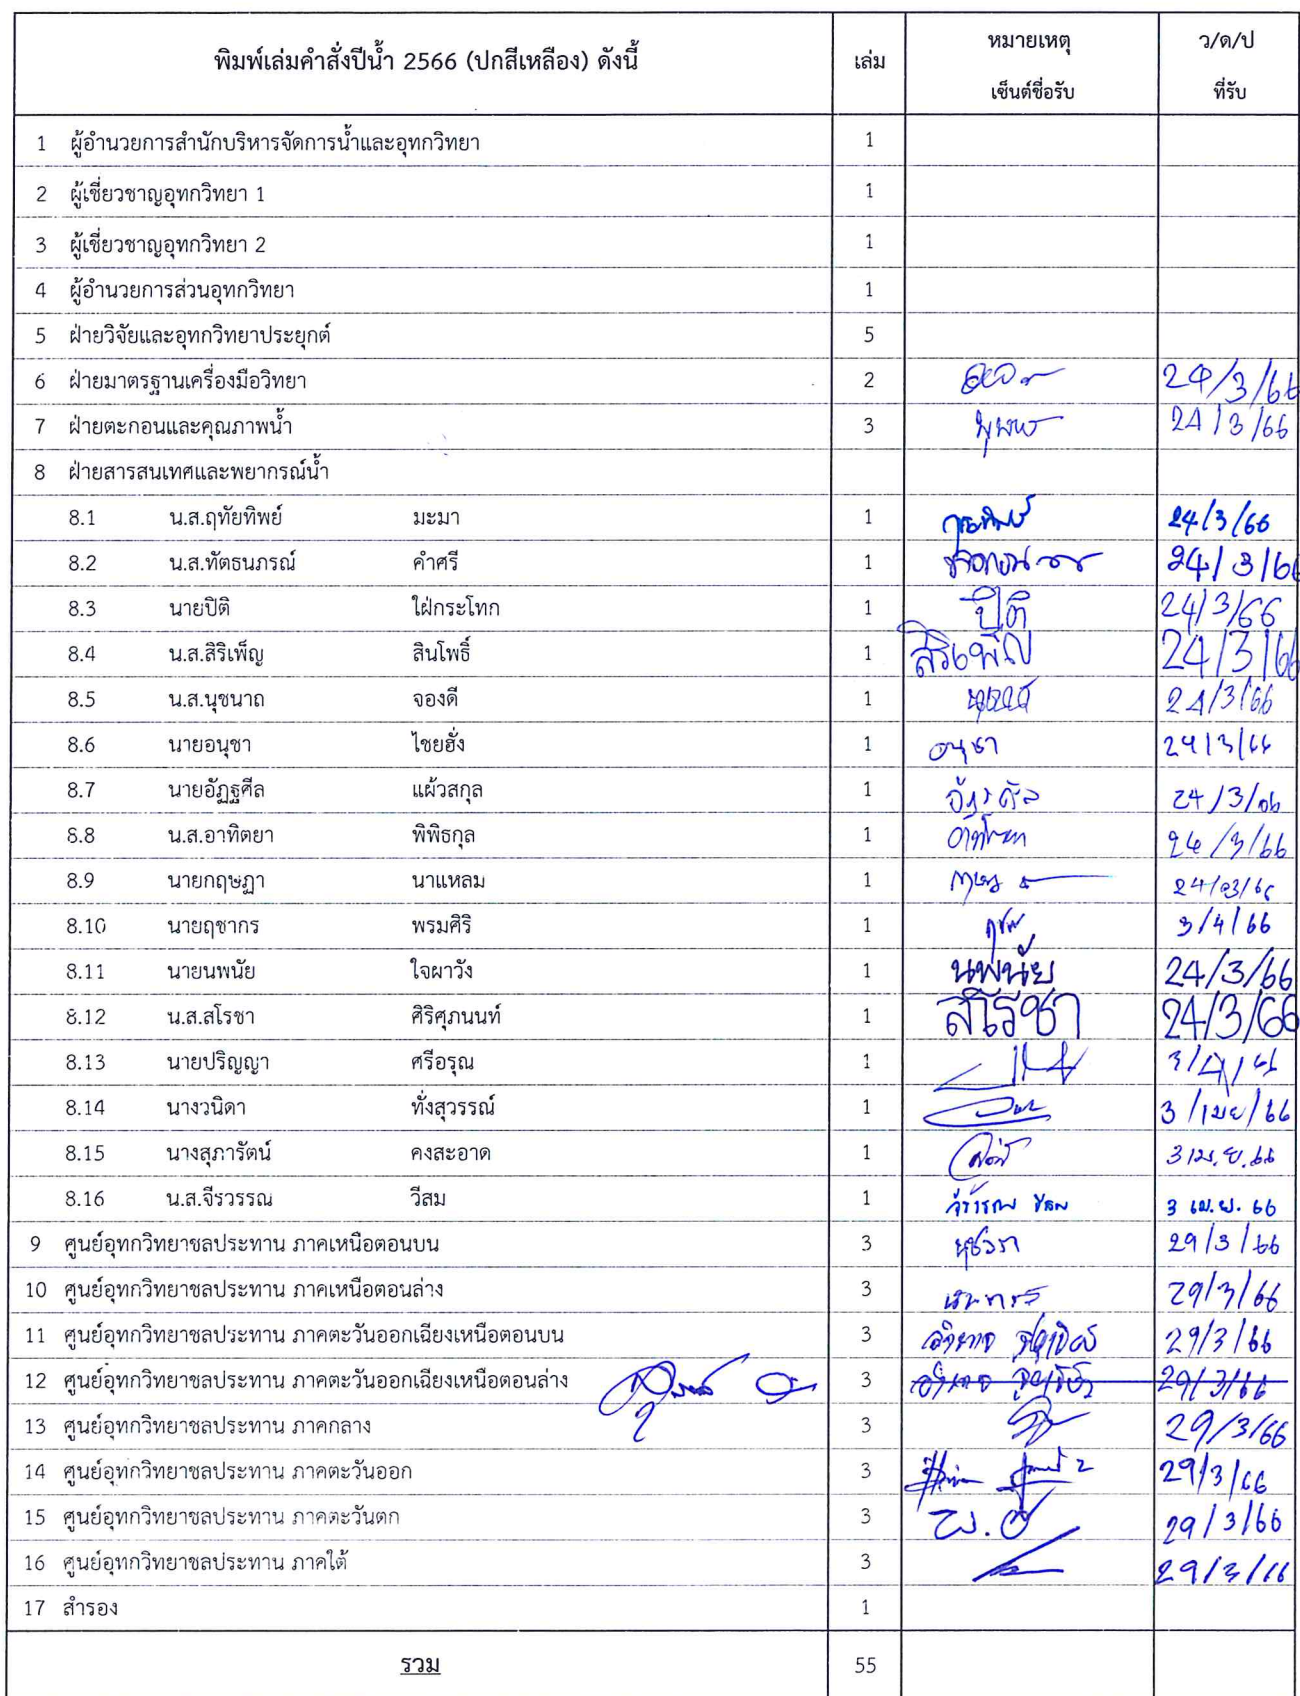 พิมพ์เล่มคำสั่งปีน้ำ 2566 (ปกสีเหลือง) ดังนี้ เล่ม หมายเหตุ เซ็นต์ชื่อรับ ว/ด/ป ที่รับ
1 ผู้อำนวยการสำนักบริหารจัดการน้ำและอุทกวิทยา 1
2 ผู้เชี่ยวชาญอุทกวิทยา 1 1
3 ผู้เชี่ยวชาญอุทกวิทยา 2 1
4 ผู้อำนวยการส่วนอุทกวิทยา 1
5 ฝ่ายวิจัยและอุทกวิทยาประยุกต์ 5
6 ฝ่ายมาตรฐานเครื่องมือวิทยา 2 24/3/66
7 ฝ่ายตะกอนและคุณภาพน้ำ 3 24/3/66
8 ฝ่ายสารสนเทศและพยากรณ์น้ำ
8.1 น.ส.ฤทัยทิพย์ มะมา 1 24/3/66
8.2 น.ส.ทัตธนภรณ์ คำศรี 1 24/3/66
8.3 นายปิติ ใฝ่กระโทก 1 ปิติ 24/3/66
8.4 น.ส.สิริเพ็ญ สินโพธิ์ 1 สิริเพ็ญ 24/3/66
8.5 น.ส.นุชนาถ จองดี 1 24/3/66
8.6 นายอนุชา ไชยฮั่ง 1 อนุชา 24/3/66
8.7 นายอัฏฐศีล แผ้วสกุล 1 24/3/66
8.8 น.ส.อาทิตยา พิพิธกุล 1 อาทิตยา 24/3/66
8.9 นายกฤษฏา นาแหลม 1 24/03/66
8.10 นายฤชากร พรมศิริ 1 3/4/66
8.11 นายนพนัย ใจผาวัง 1 นพนัย 24/3/66
8.12 น.ส.สโรชา ศิริศุภนนท์ 1 สโรชา 24/3/66
8.13 นายปริญญา ศรีอรุณ 1 3/4/66
8.14 นางวนิดา ทั่งสุวรรณ์ 1 3/เมย/66
8.15 นางสุภารัตน์ คงสะอาด 1 3 เม.ย. 66
8.16 น.ส.จีรวรรณ วีสม 1 จีรวรรณ วีสม 3 เม.ย. 66
9 ศูนย์อุทกวิทยาชลประทาน ภาคเหนือตอนบน 3 29/3/66
10 ศูนย์อุทกวิทยาชลประทาน ภาคเหนือตอนล่าง 3 29/3/66
11 ศูนย์อุทกวิทยาชลประทาน ภาคตะวันออกเฉียงเหนือตอนบน 3 29/3/66
12 ศูนย์อุทกวิทยาชลประทาน ภาคตะวันออกเฉียงเหนือตอนล่าง 3 29/3/66
13 ศูนย์อุทกวิทยาชลประทาน ภาคกลาง 3 29/3/66
14 ศูนย์อุทกวิทยาชลประทาน ภาคตะวันออก 3 29/3/66
15 ศูนย์อุทกวิทยาชลประทาน ภาคตะวันตก 3 29/3/66
16 ศูนย์อุทกวิทยาชลประทาน ภาคใต้ 3 29/3/66
17 สำรอง 1
รวม 55